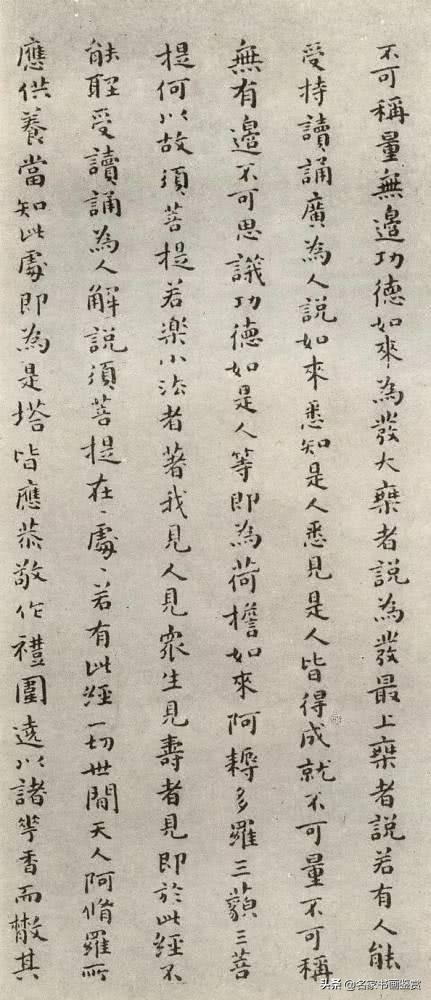 不可稱量無邊功德如來為發大乘者說為發最上乘者說若有人能
受持讀誦廣為人說如來悉知是人悉見是人皆得成就不可量不可稱
無有邊不可思議功德如是人等即為荷擔如來阿耨多羅三藐三菩
提何以故須菩提若樂小法者著我見人見眾生見壽者見即於此經不
能聽受讀誦為人解說須菩提在、處、若有此經一切世間天人阿脩羅所
應供養當知此處即為是塔皆應恭敬作禮圍遶以諸華香而散其
头条 @名家书画鉴赏